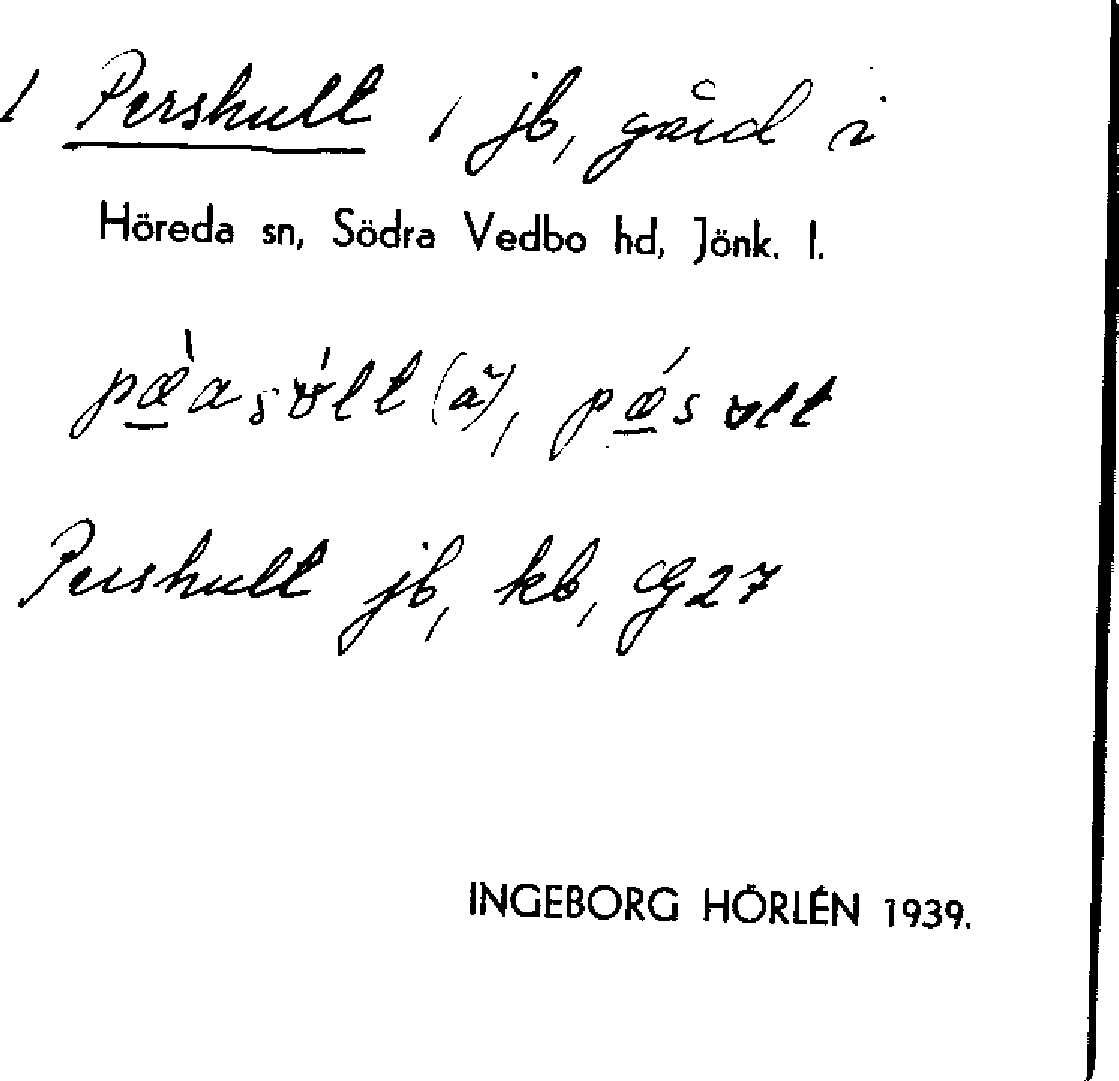 1 Pershult, jb, gård i
Höreda sn, Södra Vedbo hd, Jönk. l.
Pershult jb, kb, CG27
INGEBORG HÖRLÉN 1939.